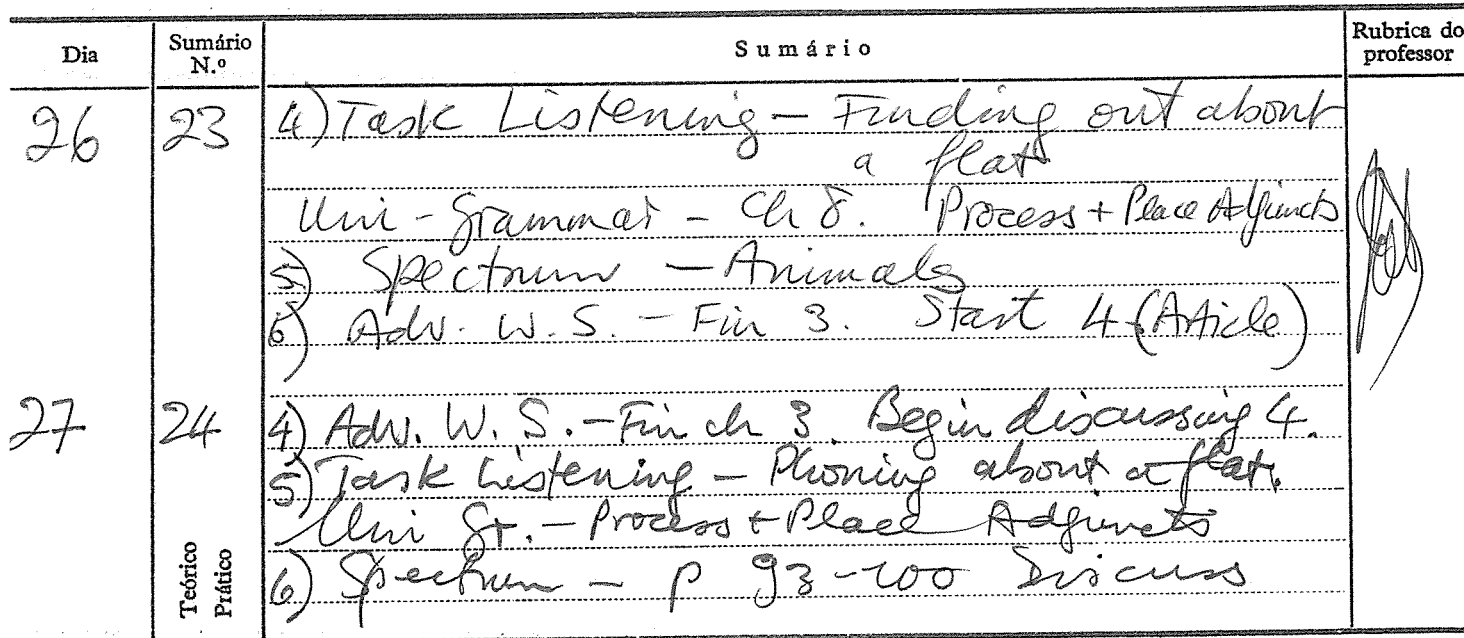 Dia
Sumário N.º
Sumário
Rubrica do professor
26 23 4) Task Listening – Finding out about
a flat
Uni-Grammar – Ch 8. Process + Place Adjuncts
5) Spectrum – Animals
6) Adv. W. S. – Fin 3. Start 4 (Article)
27 24 4) Adv. W. S. – Fin ch 3. Begin discussing 4.
5) Task Listening – Phoning about a flat.
Uni Gr. – Process + Place Adjuncts
6) Spectrum – p 93-100 Discuss
Teórico
Prático